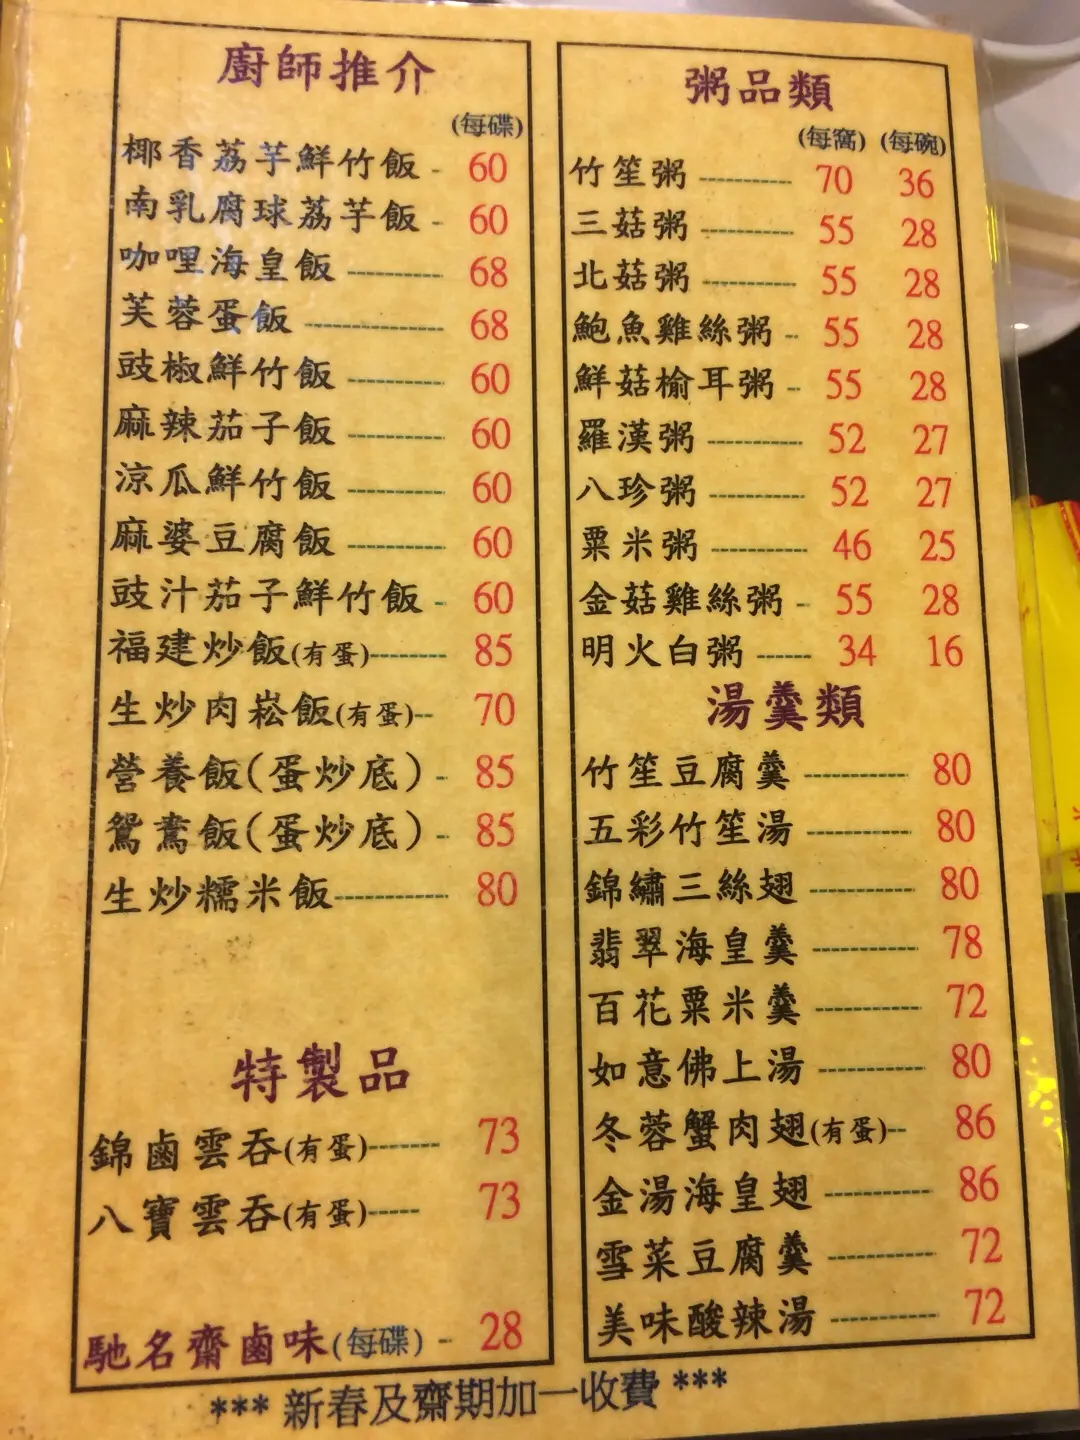 廚師推介
(每碟)
椰香荔芋鮮竹飯 60
南乳腐球荔芋飯 60
咖哩海皇飯 68
芙蓉蛋飯 68
豉椒鮮竹飯 60
麻辣茄子飯 60
涼瓜鮮竹飯 60
麻婆豆腐飯 60
豉汁茄子鮮竹飯 60
福建炒飯(有蛋) 85
生炒肉崧飯(有蛋) 70
營養飯(蛋炒底) 85
鴛鴦飯(蛋炒底) 85
生炒糯米飯 80
特製品
錦鹵雲吞(有蛋) 73
八寶雲吞(有蛋) 73
馳名齋鹵味(每碟) 28
粥品類
(每窩) (每碗)
竹笙粥 70 36
三菇粥 55 28
北菇粥 55 28
鮑魚雞絲粥 55 28
鮮菇榆耳粥 55 28
羅漢粥 52 27
八珍粥 52 27
粟米粥 46 25
金菇雞絲粥 55 28
明火白粥 34 16
湯羹類
竹笙豆腐羹 80
五彩竹笙湯 80
錦繡三絲翅 80
翡翠海皇羹 78
百花粟米羹 72
如意佛上湯 80
冬蓉蟹肉翅(有蛋) 86
金湯海皇翅 86
雪菜豆腐羹 72
美味酸辣湯 72
*** 新春及齋期加一收費 ***